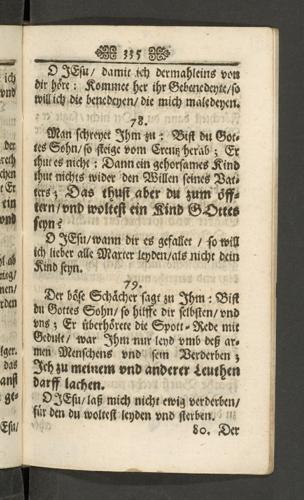 335
O JEsu/ damit ich dermahleins von
dir höre: Kommet her ihr Gebenedeyte/so
will ich die benedeyen/die mich maledeyen.
78.
Man schreyet Ihm zu: Bist du Got-
tes Sohn/so steige vom Creutz herab; Er
thut es nicht: Dann ein gehorsames Kind
thut nichts wider den Willen seines Vat-
ters; Das thust aber du zum öff-
tern/vnd woltest ein Kind GOttes
seyn?
O JEsu/wann dir es gefallet / so will
ich lieber alle Marter leyden/als nicht dein
Kind seyn.
79.
Der böse Schächer sagt zu Ihm: Bist
du Gottes Sohn/ so hilffe dir selbsten/vnd
vns; Er überhörete die Spott-Rede mit
Gedult/ war Ihm nur leyd vmb deß ar-
men Menschens vnd sein Verderben;
Ich zu meinem vnd anderer Leuthen
darff lachen.
O JEsu/ laß mich nicht ewig verderben/
für den du woltest leyden vnd sterben.
80. Der
ich
vnd
der
Er
ein
vnd
hl
als
nen/
rden
lger.
das
anst
ge-
Esu/